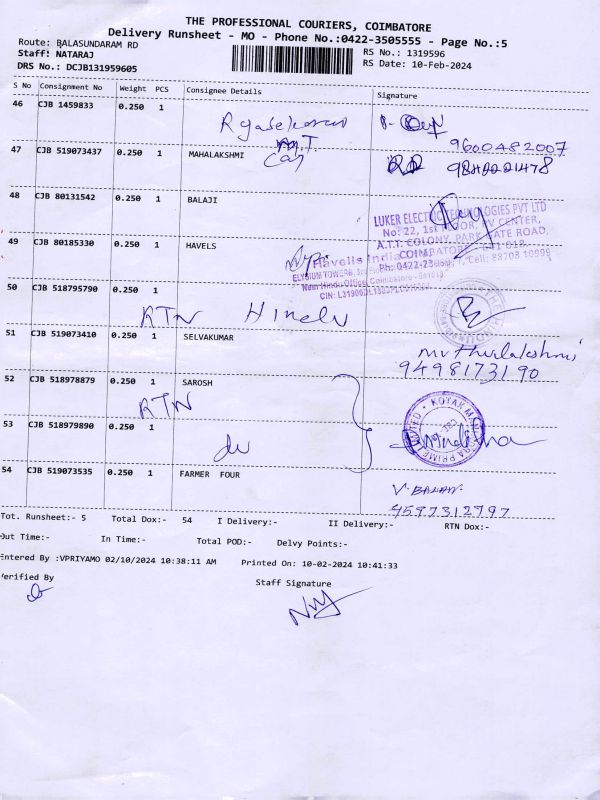 THE PROFESSIONAL COURIERS, COIMBATORE
Delivery Runsheet - MO - Phone No.:0422-3505555 - Page No.:5
Route: BALASUNDARAM RD
RS No.: 1319596
Staff: NATARAJ
RS Date: 10-Feb-2024
DRS No.: DCJB131959605
S No Consignment No Weight PCS Consignee Details Signature
46 CJB 1459833 0.250 1
9600482007
47 CJB 519073437 0.250 1 MAHALAKSHMI
48 CJB 80131542 0.250 1 BALAJI
LUKER ELECTRIC TECHNOLOGIES PVT LTD
No: 22, 1st FLOOR, VV CENTER,
A.T.T. COLONY, PARK GATE ROAD,
49 CJB 80185330 0.250 1 HAVELS
Havells India
ELYSIUM TOWERS
50 CJB 518795790 0.250 1
RTN Hindu
51 CJB 519073410 0.250 1 SELVAKUMAR
Muthulakshmi
9498173190
52 CJB 518978879 0.250 1 SAROSH
RTN
KOTAK MAHINDRA PRIME LIMITED
53 CJB 518979890 0.250 1
54 CJB 519073535 0.250 1 FARMER FOUR
V. BALAN
9597312797
Tot. Runsheet:- 5 Total Dox:- 54 I Delivery:- II Delivery:- RTN Dox:-
Out Time:- In Time:- Total POD:- Delvy Points:-
Entered By :VPRIYAMO 02/10/2024 10:38:11 AM Printed On: 10-02-2024 10:41:33
Verified By
Staff Signature